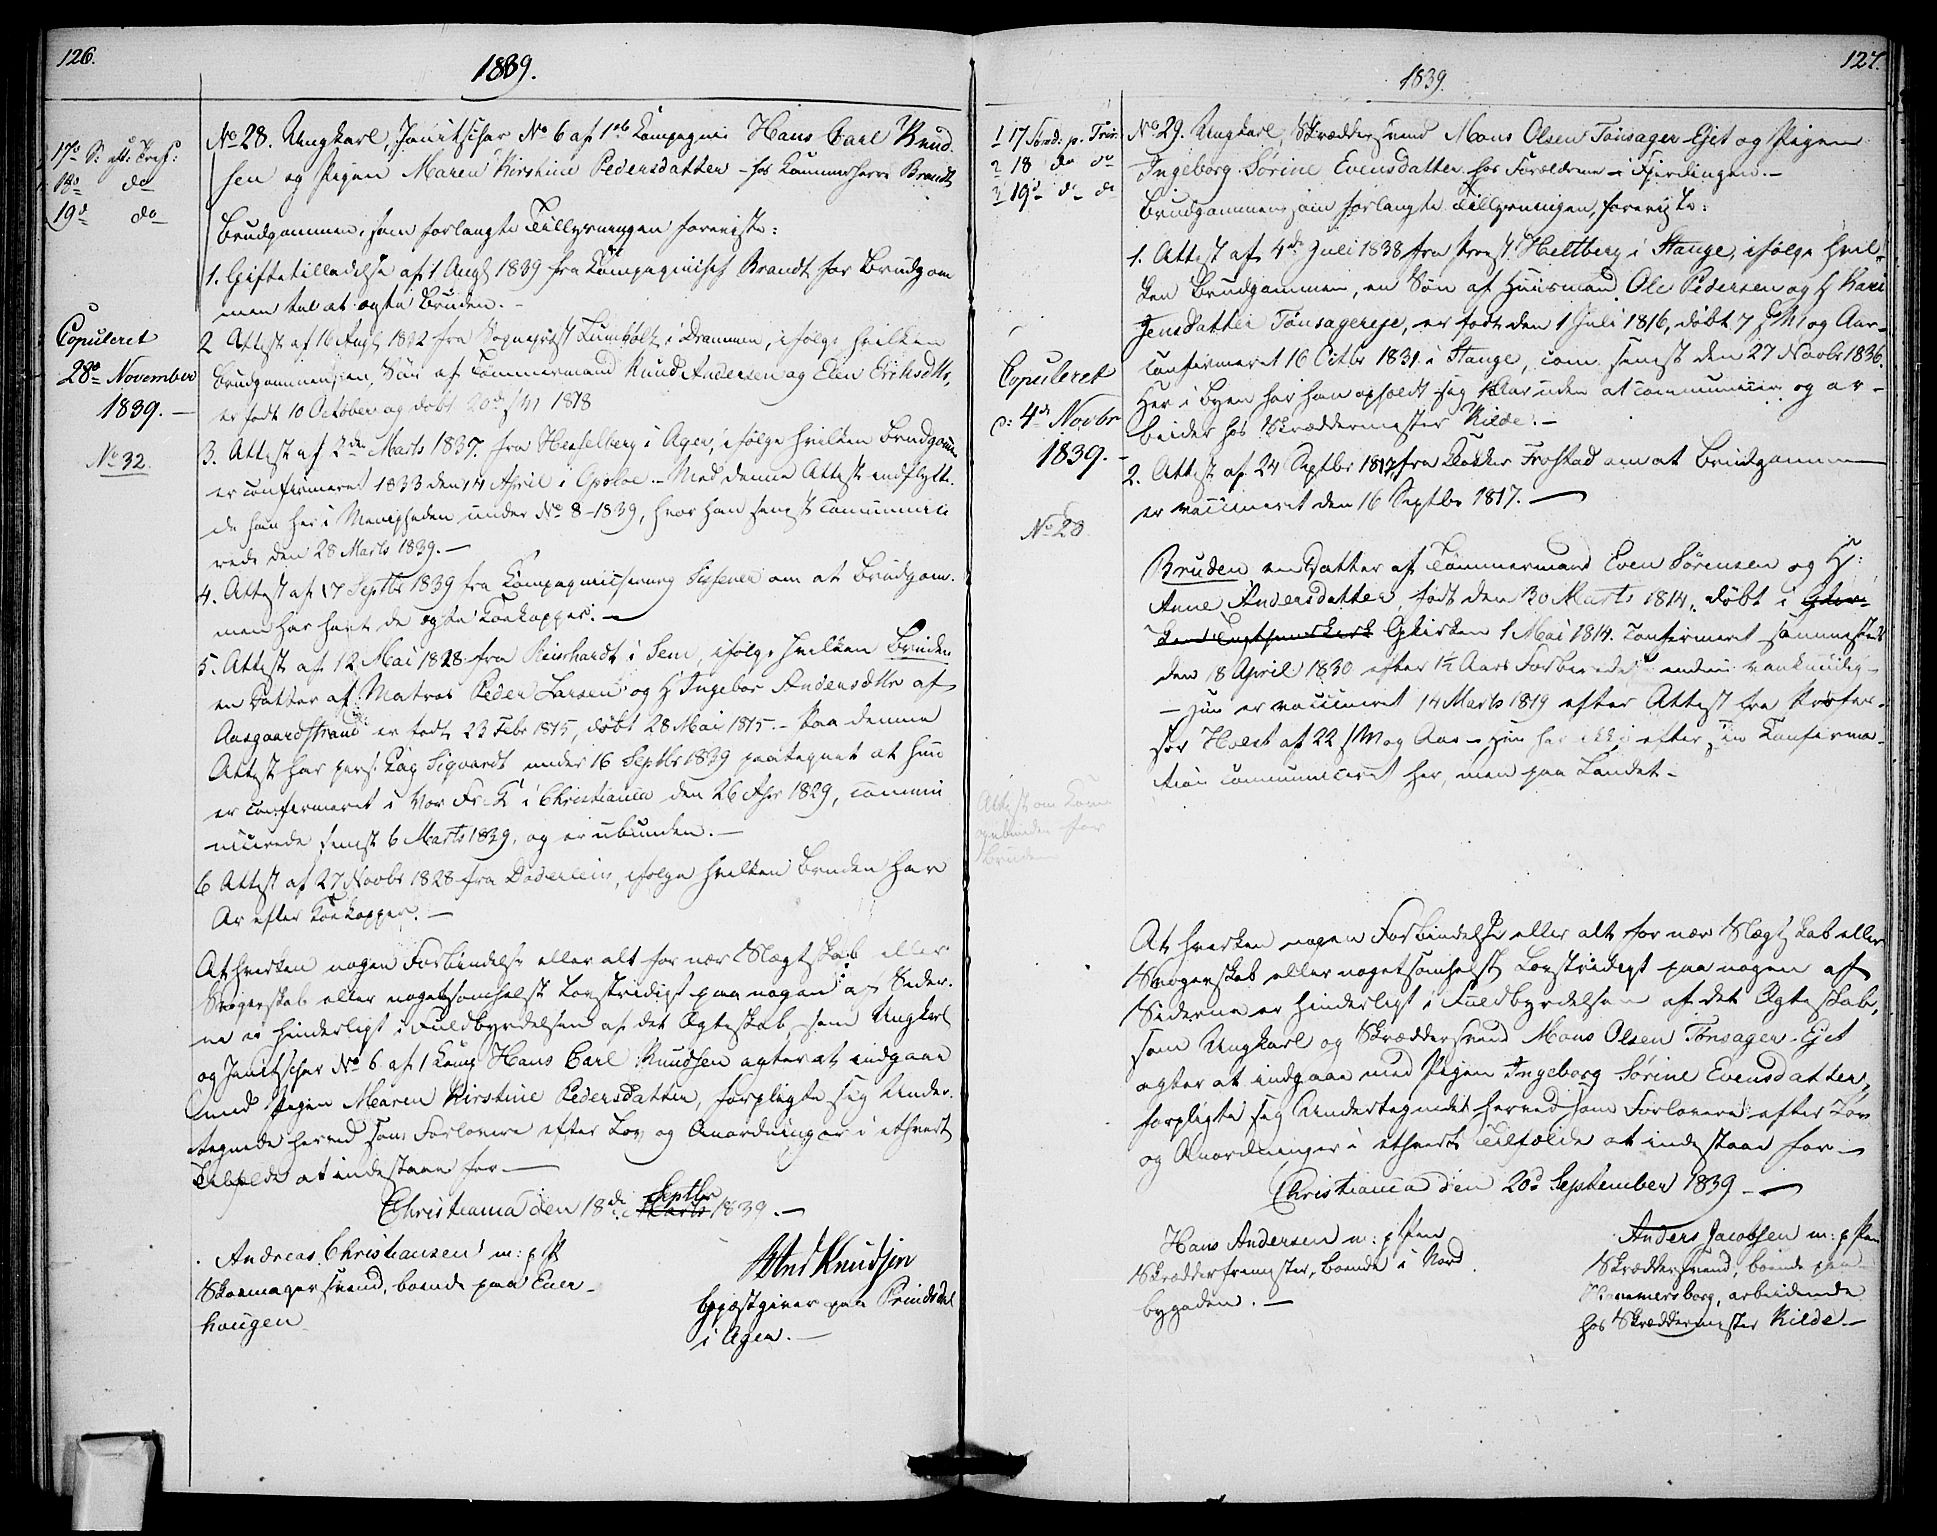 126.
1839.
17de S: eft: Tref:
18de do
19de do
Copuleret
28de November
1839. —
No 32.
No 28. Ungkarl, Janitschar No 6 af 1ste Kompagni Hans Carl Knud
sen og Pigen Maren Kirstine Pedersdatter – hos Kammerherre Brandt
Brudgommen, som forlangte Tillysningen foreviste:
1. Giftetilladelse af 1 Augs 1839 fra Kompagnichef Brandt for Brudgom
men til at ægte Bruden. –
2 Attest af 16 Augs 1832 fra Sogneprest Lumholtz i Drammen, ifølge hvilken
Brudgommen, en Søn af Tømmermand Knud Andersen og Elen Eriksdtr,
er født 10 October og døbt 20de s M 1818
3. Attest af 2den Marts 1837 fra Hesselberg i Ager, ifølge hvilken Brudgomm
er confirmeret 1833 den 14 April i Opsloe – Med denne Attest indflytte
de han her i Menigheden under No 8 – 1839, hvor han senest communice
rede den 28 Marts 1839. —
4. Attest af 17 Septbr 1839 fra Kompagnichirurg Sissener om at Brudgom
men har havt de ægte Koekopper. —
5. Attest af 12 Mai 1828 fra Reinhardt i Sem, ifølge hvilken Bruden
en Datter af Matros Peder Larsen og H Ingebor Andersdtr af
Aasgaardstrand er født 23 Febr 1815, døbt 28 Mai 1815 – Paa denne
Attest har pers: Kap Sigvardt under 16 Septbr 1839 paategnet at hun
er confirmeret i Vor Fr: K i Christiania den 26 Apr 1829, commu
nicerede senest 6 Marts 1839, og er ubunden. —
6 Attest af 27 Novbr 1828 fra Døderlein, ifølge hvilken Bruden har
Ar efter Koekopper. —
At hverken nogen Forbindelse eller alt for nær Slægtskab eller
Svogerskab eller nogetsomhelst Lovstridigt paa nogen af Sider
ne er hinderligt i Fuldbyrdelsen af det Ægteskab, som Ungkarl
og Janitschar No 6 af 1 Komp Hans Carl Knudsen agter at indgaae
med Pigen Maren Kirstine Pedersdatter, forpligte sig Under
tegnede herved som Forlovere efter Lov og Anordninger i ethvert
Tilfælde at indestaae for —
Christiania den 18de Marts Septbr 1839. —
Andreas Christiansen m: p P
Skoemagersvend, boende paa Ener
haugen
Knudsen
Gjæstgiver paa Prindsdal
i Ager. —
127.
1839.
1 17 Sønd: p. Trin:
2 18 do do
3 19de do do
Copuleret
d: 4de Novbr
1839. –
No 28
Attest om Kom
for
Bruden
No 29. Ungkarl, Skræddersvend Mons Olsen Tønsager Ejet og Pigen
Ingeborg Sørine Evensdatter hos Forældrene i Fjerdingen. —
Brudgommen, som forlangte Tillysningen, foreviste:
1. Attest af 4de Juli 1838 fra Provst Heltberg i Stange, ifølge hvil-
ken Brudgommen, en Søn af Huusmand Ole Pedersen og H Kari
Jensdatter Tønsagereje, er født den 1 Juli 1816, døbt 7 s M og Aar –
confirmeret 16 Octbr 1831 i Stange, com senest den 27 Novbr 1836.
Her i Byen har han opholdt sig 1 Aar uden at communicere og ar-
beider hos Skræddermester Kilde. —
2. Attest af 24 Septbr 1817 fra Klokker Frostad om at Brudgommen
er vaccineret den 16 Septbr 1817. —
Bruden en Datter af Tømmermand Even Sørensen og H:
Anne Andersdatter, født den 30 Marts 1814, døbt i
Tugthuuskirk Gkirken 1 Mai 1814. Confirmeret sammesteds
den 18 April 1830 efter 1½ Aars Forberedelse
– hun er vaccineret 14 Marts 1819 efter Attest fra Profes
sor Holst af 22 s M og Aar – hun har ikke efter sin Konfirma
tion communiceret her, men paa Landet –
At hverken nogen Forbindelse eller alt for nær Slægtskab eller
Svogerskab eller nogetsomhelst Lovstridigt paa nogen af
Siderne er hinderligt i Fuldbyrdelsen af det Ægteskab,
som Ungkarl og Skræddersvend Mons Olsen Tønsager-Ejet
agter at indgaae med Pigen Ingeborg Sørine Evensdatter,
forpligte sig Undertegnede herved som Forlovere efter Lov
og Anordninger i ethvert Tilfælde at indestaae for —
Christiania den 20de September 1839 – —
Hans Andersen m: p Pen
Skrædderfremester, boende i Nord
bygaden. —
Anders Jacobsen m: p Pen
Skræddersvend, boende paa
Hammersborg, arbeidende
hos Skræddermester Kilde –